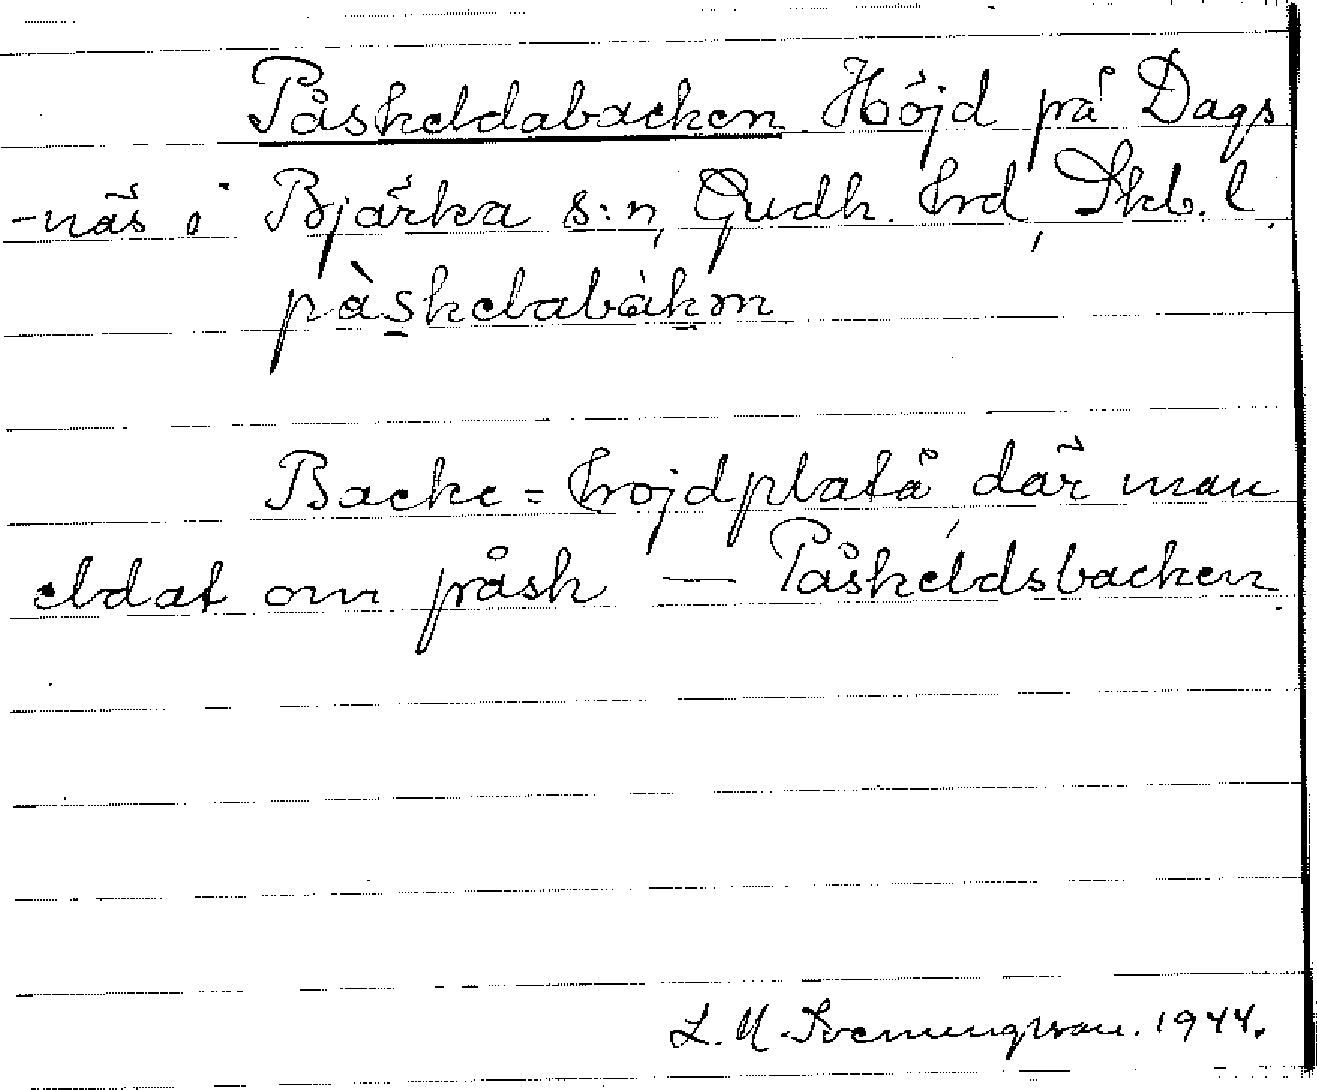 Påskeldabacken Höjd på Dags
-näs i Bjärka s:n, Gudh. hrd, Skb. l.
pàskelabàkm
Backe = hojdplatå, där man
eldat om påsk — Påskeldsbacken
L. M. Svenungsson. 1944.